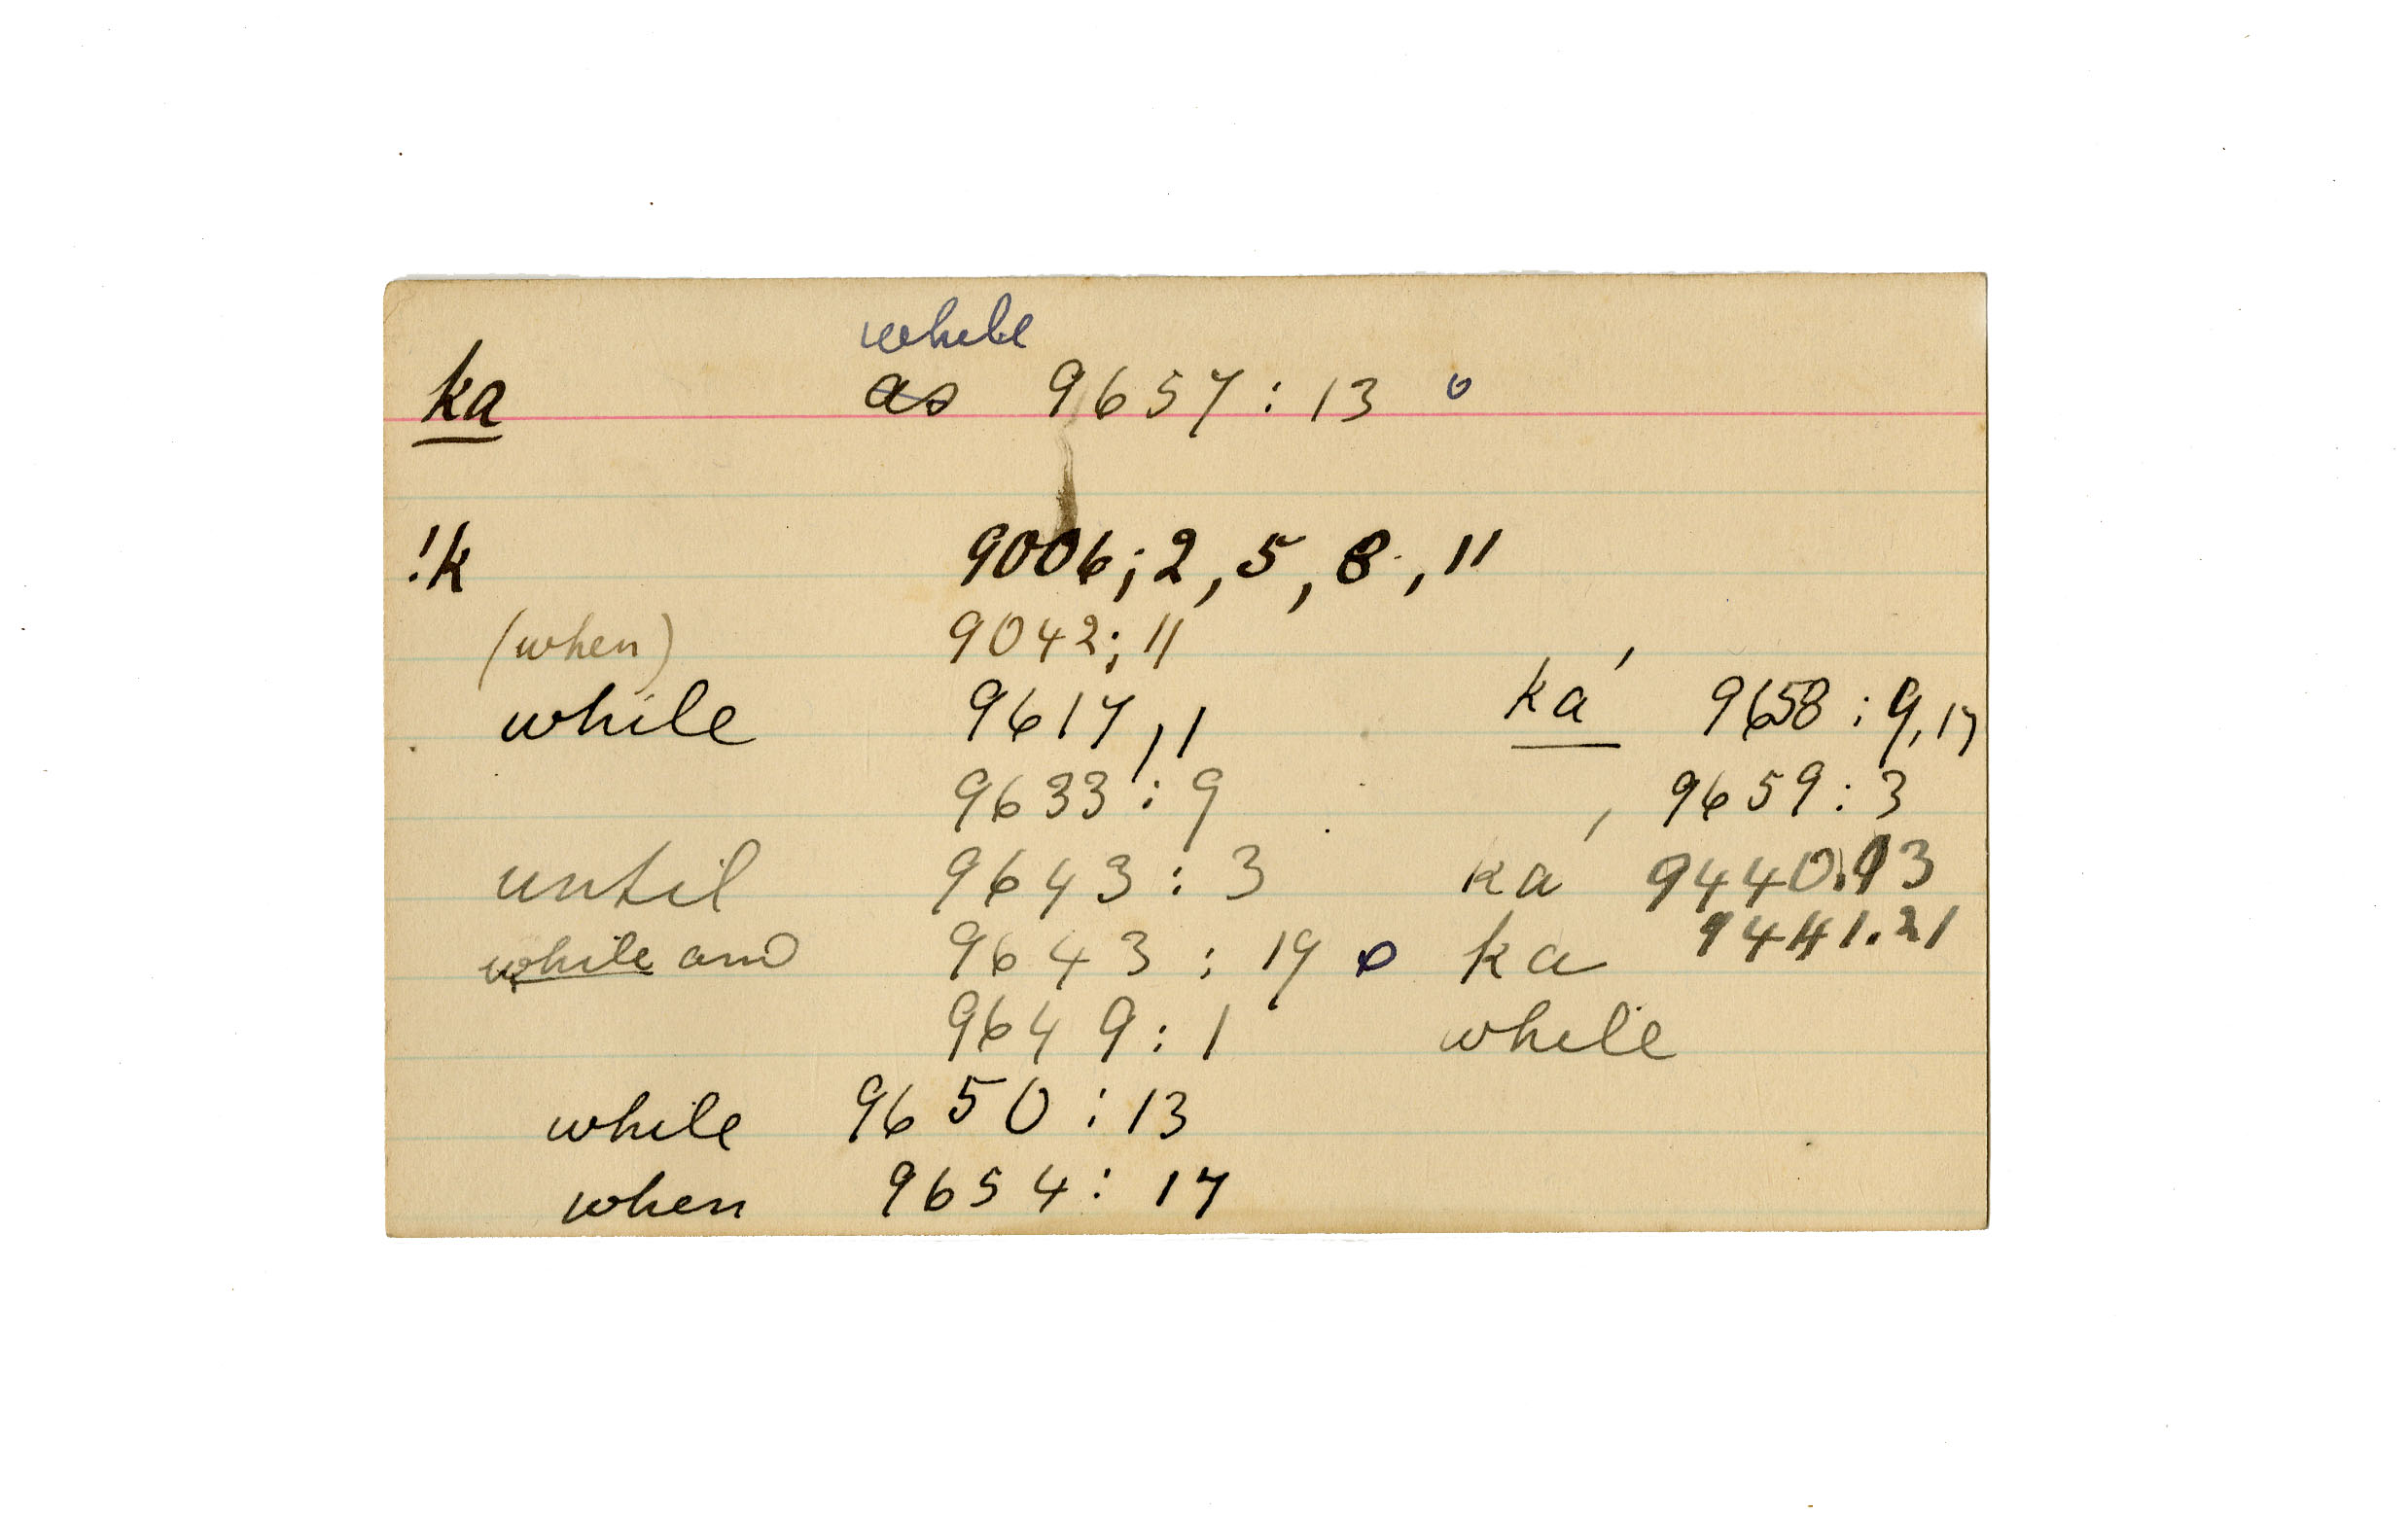 while
ka as 9657 : 13 o
!k 9006 ; 2 , 5 , 8 , 11
(when) 9042 ; 11
while 9617 , 1 ka´ 9658 : 9, 17
9633 : 9 9659 : 3
until 9643 : 3 ka´ 9440.13
while and 9643 : 19 o ka 9441.21
9649 : 1 while
while 9650 : 13
when 9654 : 17